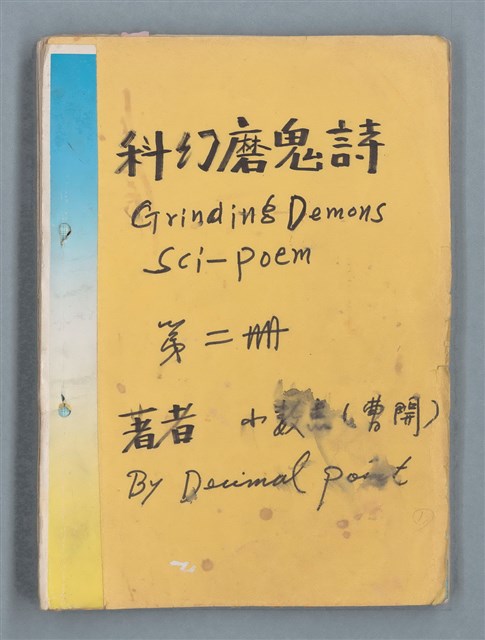 科幻磨鬼詩
Grinding Demons
Sci-poem
第二冊
著者 小數点(曹開)
By Decimal point